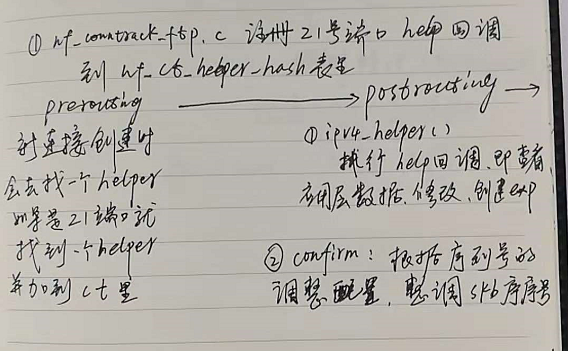 ① nf_conntrack_ftp.c 注册21号端口 help 回调
到 nf_ct_helper_hash表里
prerouting ⟶ postrouting ⟶
新连接创建时
会去找一个helper
如果是21端口就
找到一个helper
并加到 ct 里
① ipv4_helper()
执行help回调、即查看
应用层数据、修改、创建exp
② confirm：根据序列号的
调整配置，整调skb序序号